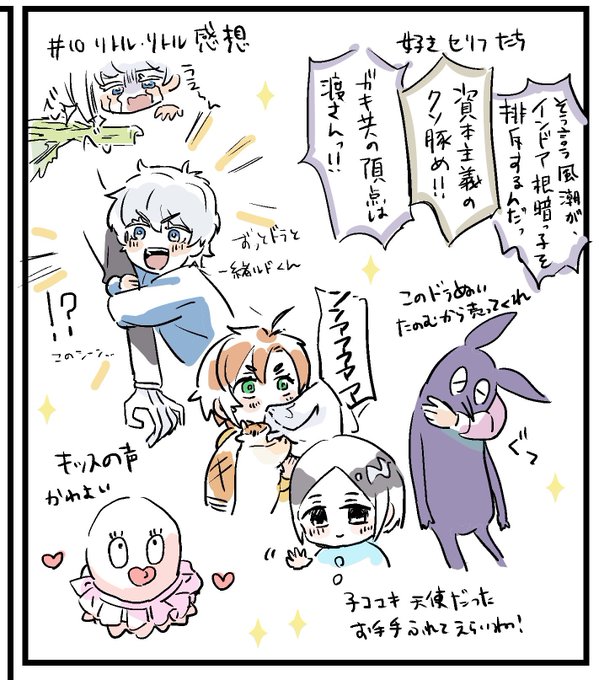 #10 リトル・リトル 感想
好きセリフたち
そう言う風潮が、
インドア根暗っ子を
排斥するんだっ
資本主義の
クソ豚め!!
ガキ共の頂点は
渡さんっ!!
ずっとドラと
一緒ルドくん
!?
このシーン…
シァァァァ
このドラぬい
たのむから売ってくれ
ぐっ
キッスの声
かわよい
子ココキ 天使だった
お手手ふれてえらいわ!